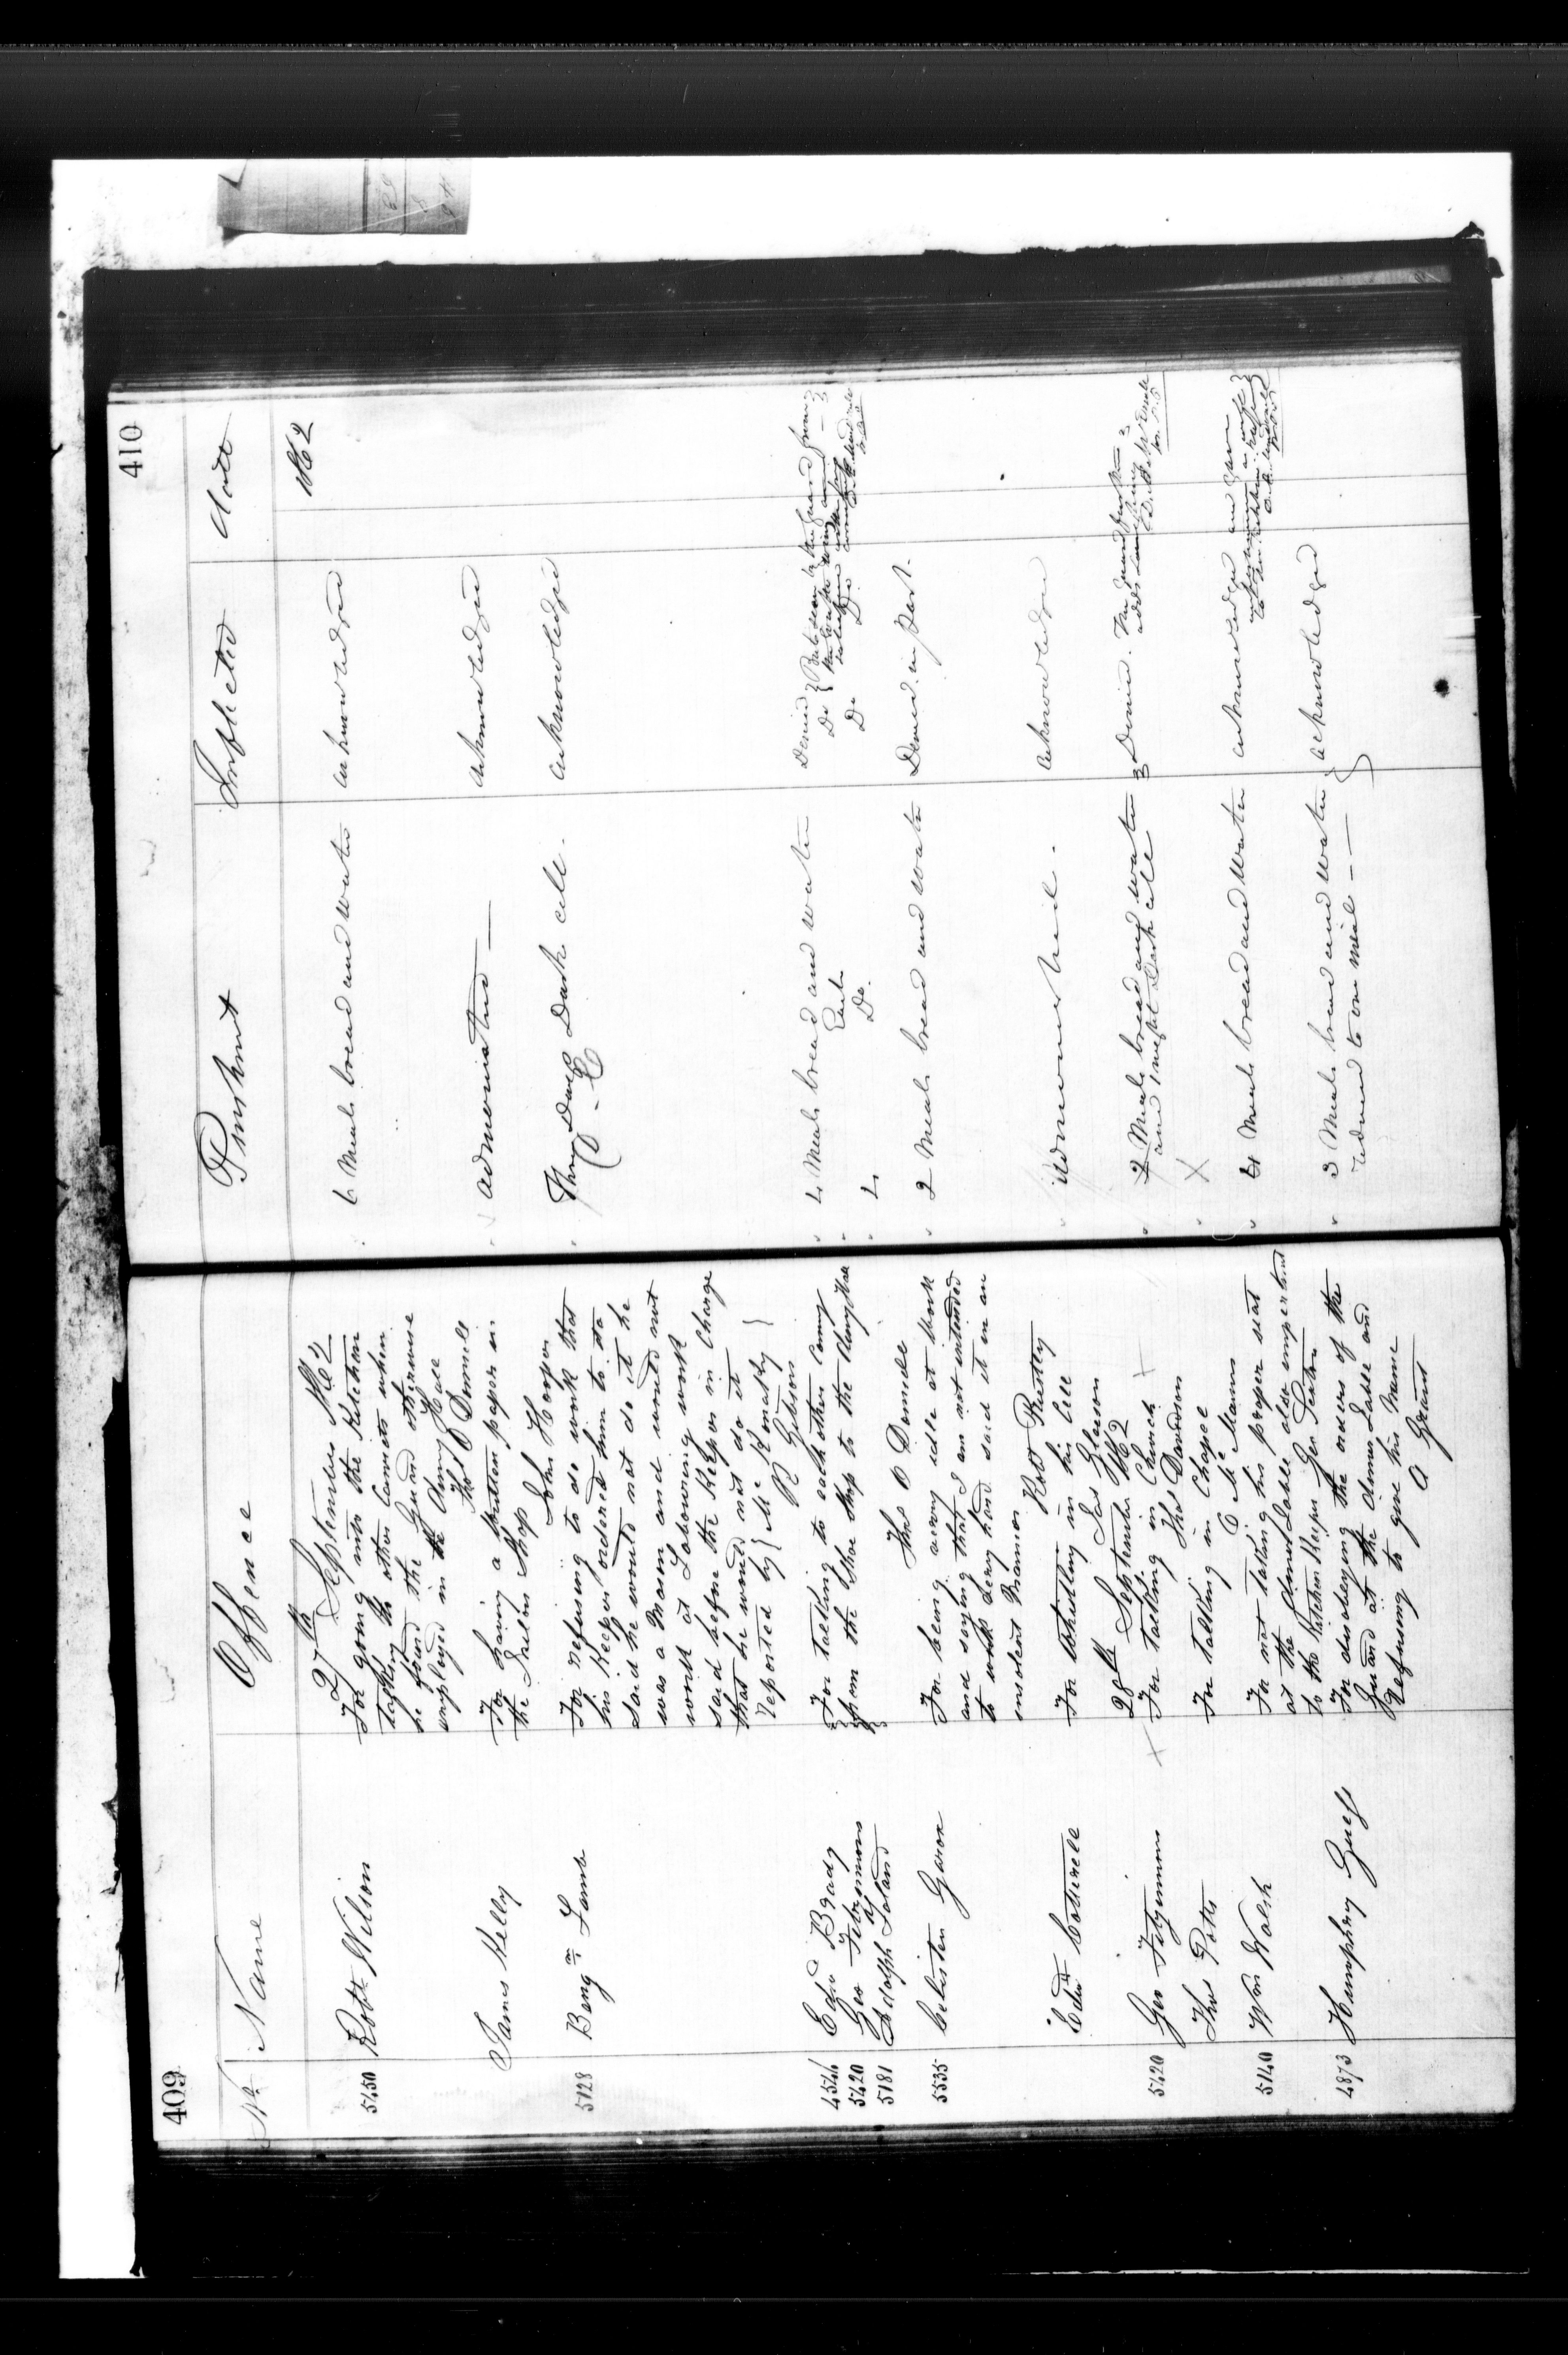 409
No. Name Offence
27th September 1862
5450 Robt Wilson For going into the Kitchen
talking to other Convicts when
he found the Guard otherwise
employed in the Dining Hall
Thos O Donnell
James Kelly For having a written paper in
the Tailor Shop John Hooper
5128 Benjn Lamb For refusing to do work that
his Keeper ordered him to do
said he would not do it he
was a Mason and would not
work at Labouring work
said before the Keeper in Charge
that he would not do it
Reported by { Mc Conalty }
R Gibson
4546 Edwd Brady For talking to each other Coming
5420 Geo Fitzsimmons from the Shoe Shop to the Dining Hall
5181 Adolph Laland Thos O Donnell
5535 Celistin Garon For being away idle at Work
and saying that I am not intended
to work very hard said it in an
insolent Manner
Robt Priestley
Edwd Cotterell For Whistling in his Cell
Jas Gleeson
28th September 1862
5420 Geo Fitzsimmons For talking in Church
Thos Davidson
Thos Potts For talking in Chapel
C McManus
5140 Wm Walsh For not taking his proper seat
at the dinner Table also impertinent
to the Kitchen Keeper Geo Sexton
4873 Humphry Guess For disobeying the orders of the
Guard at the dinner Table and
Refusing to give his Name
A Grant
410
Punishment Inflicted Date
1862
6 Meals bread and water acknowledged
admonished — acknowledged
Three Days Dark cell. acknowledged
4 Meals bread and water Denied
Each Do
4 Do. Do
2 Meals bread and water Denied in part.
Admonished. acknowledged
2 Meals bread and water Denied. The Guard
and 1 night Dark cell
4 Meals bread and water acknowledged
3 Meals bread and water acknowledged
reduced to one meal —